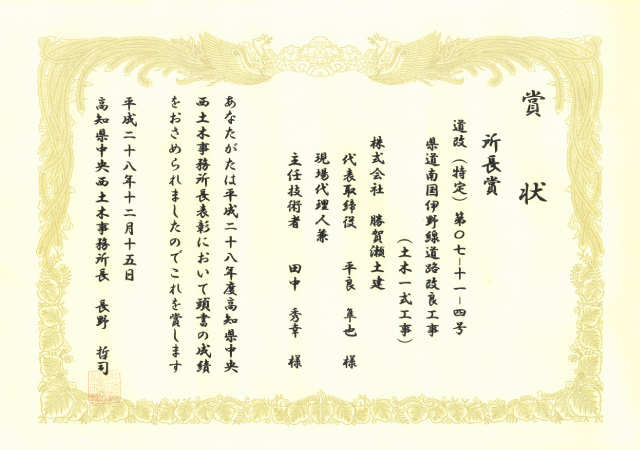 賞状
所長賞
道改(特定)第〇七-十一-四号
県道南国伊野線道路改良工事
(土木一式工事)
株式会社 勝賀瀬土建
代表取締役 平良 隼也 様
現場代理人兼
主任技術者 田中 秀幸 様
あなたがたは平成二十八年度高知県中央
西土木事務所長表彰において頭書の成績
をおさめられましたのでこれを賞します
平成二十八年十二月十五日
高知県中央西土木事務所長 長野 哲司